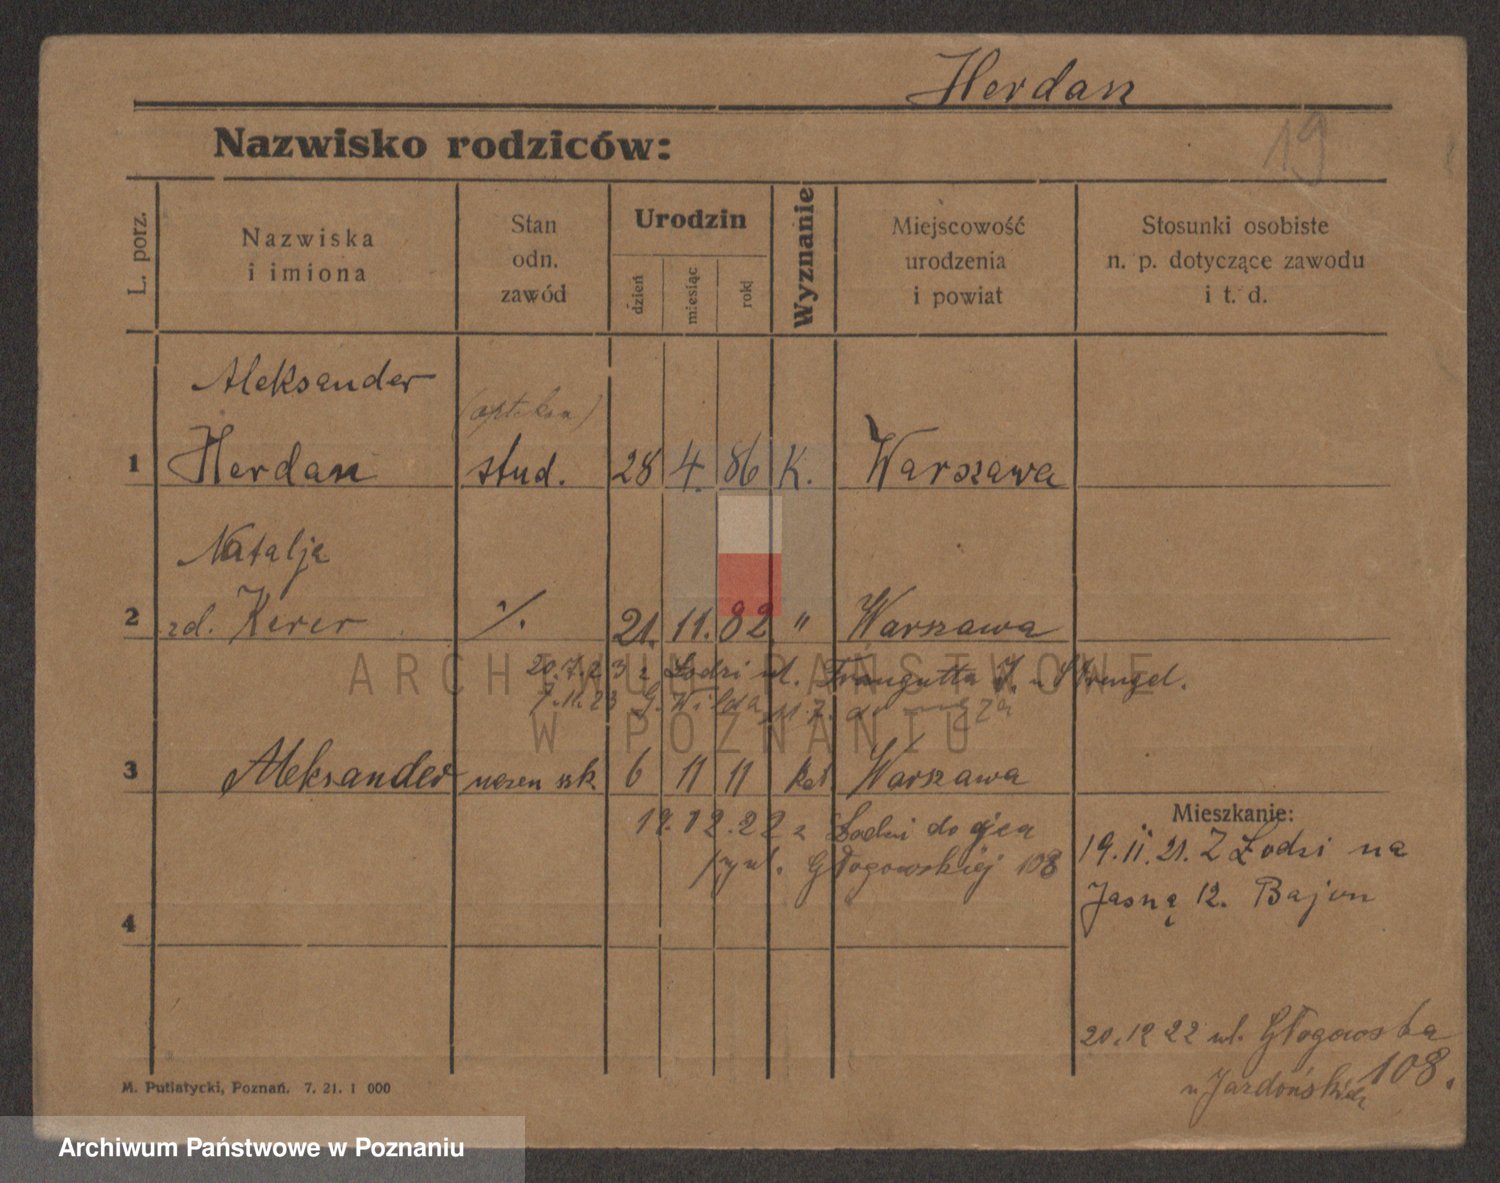 Herdan
Nazwisko rodziców:
19
L. porz.
Nazwiska
i imiona
Stan
odn.
zawód
Urodzin
dzień
miesiąc
rok
Wyznanie
Miejscowość
urodzenia
i powiat
Stosunki osobiste
n. p. dotyczące zawodu
i t. d.
Aleksander
1 Herdan stud. 28 4. 86 K. Warszawa
Natalja
2 zd. Kerer 21. 11. 82 " Warszawa
20.7.23 z Łodzi ul. Traugutta
7.11.23 G. Wilda
3 Aleksander uczen szk 6 11 11 kat Warszawa
19.12.22 z Łodzi do ojca
Głogowskiej 108
Mieszkanie:
19.II.21. Z Łodzi na
Jasną 12. Bajon
4
20.12 22 ul. Głogowska
108.
M. Putiatycki, Poznań. 7. 21. 1 000
ARCHIWUM PAŃSTWOWE
W POZNANIU
Archiwum Państwowe w Poznaniu